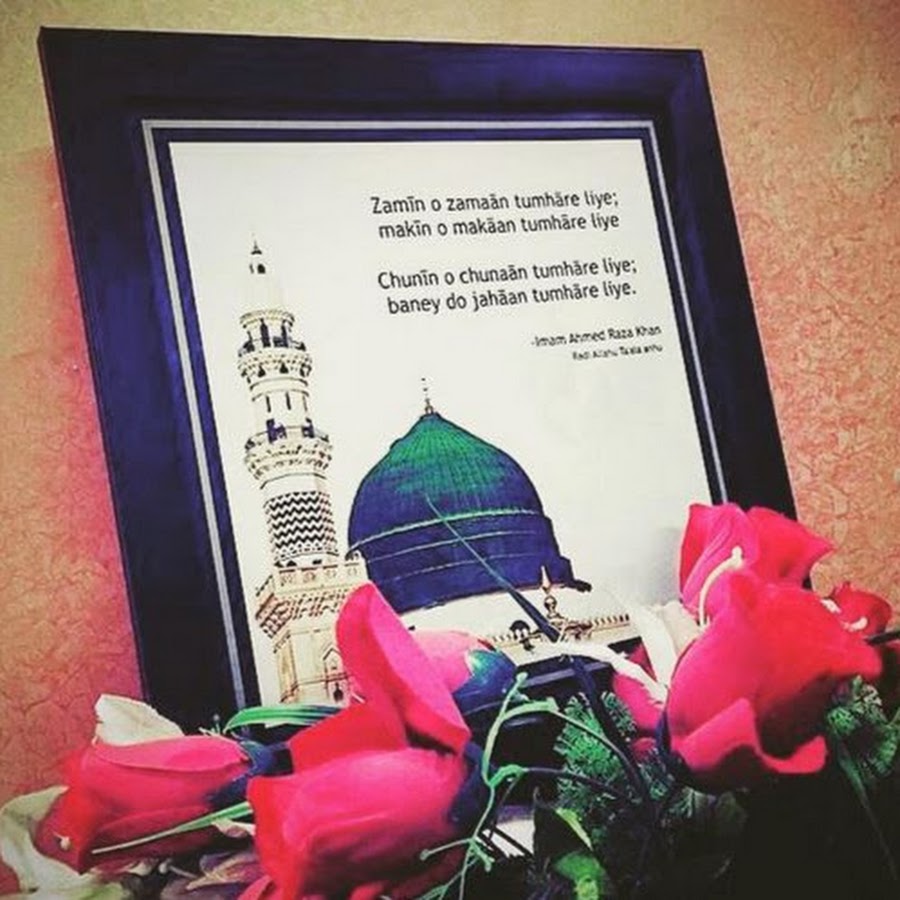 Zamīn o zamaān tumhāre liye;
makīn o makāan tumhāre liye
Chunīn o chunaān tumhāre liye;
baney do jahāan tumhāre liye.
-Imam Ahmed Raza Khan
Radi Allahu Ta'ala anhu